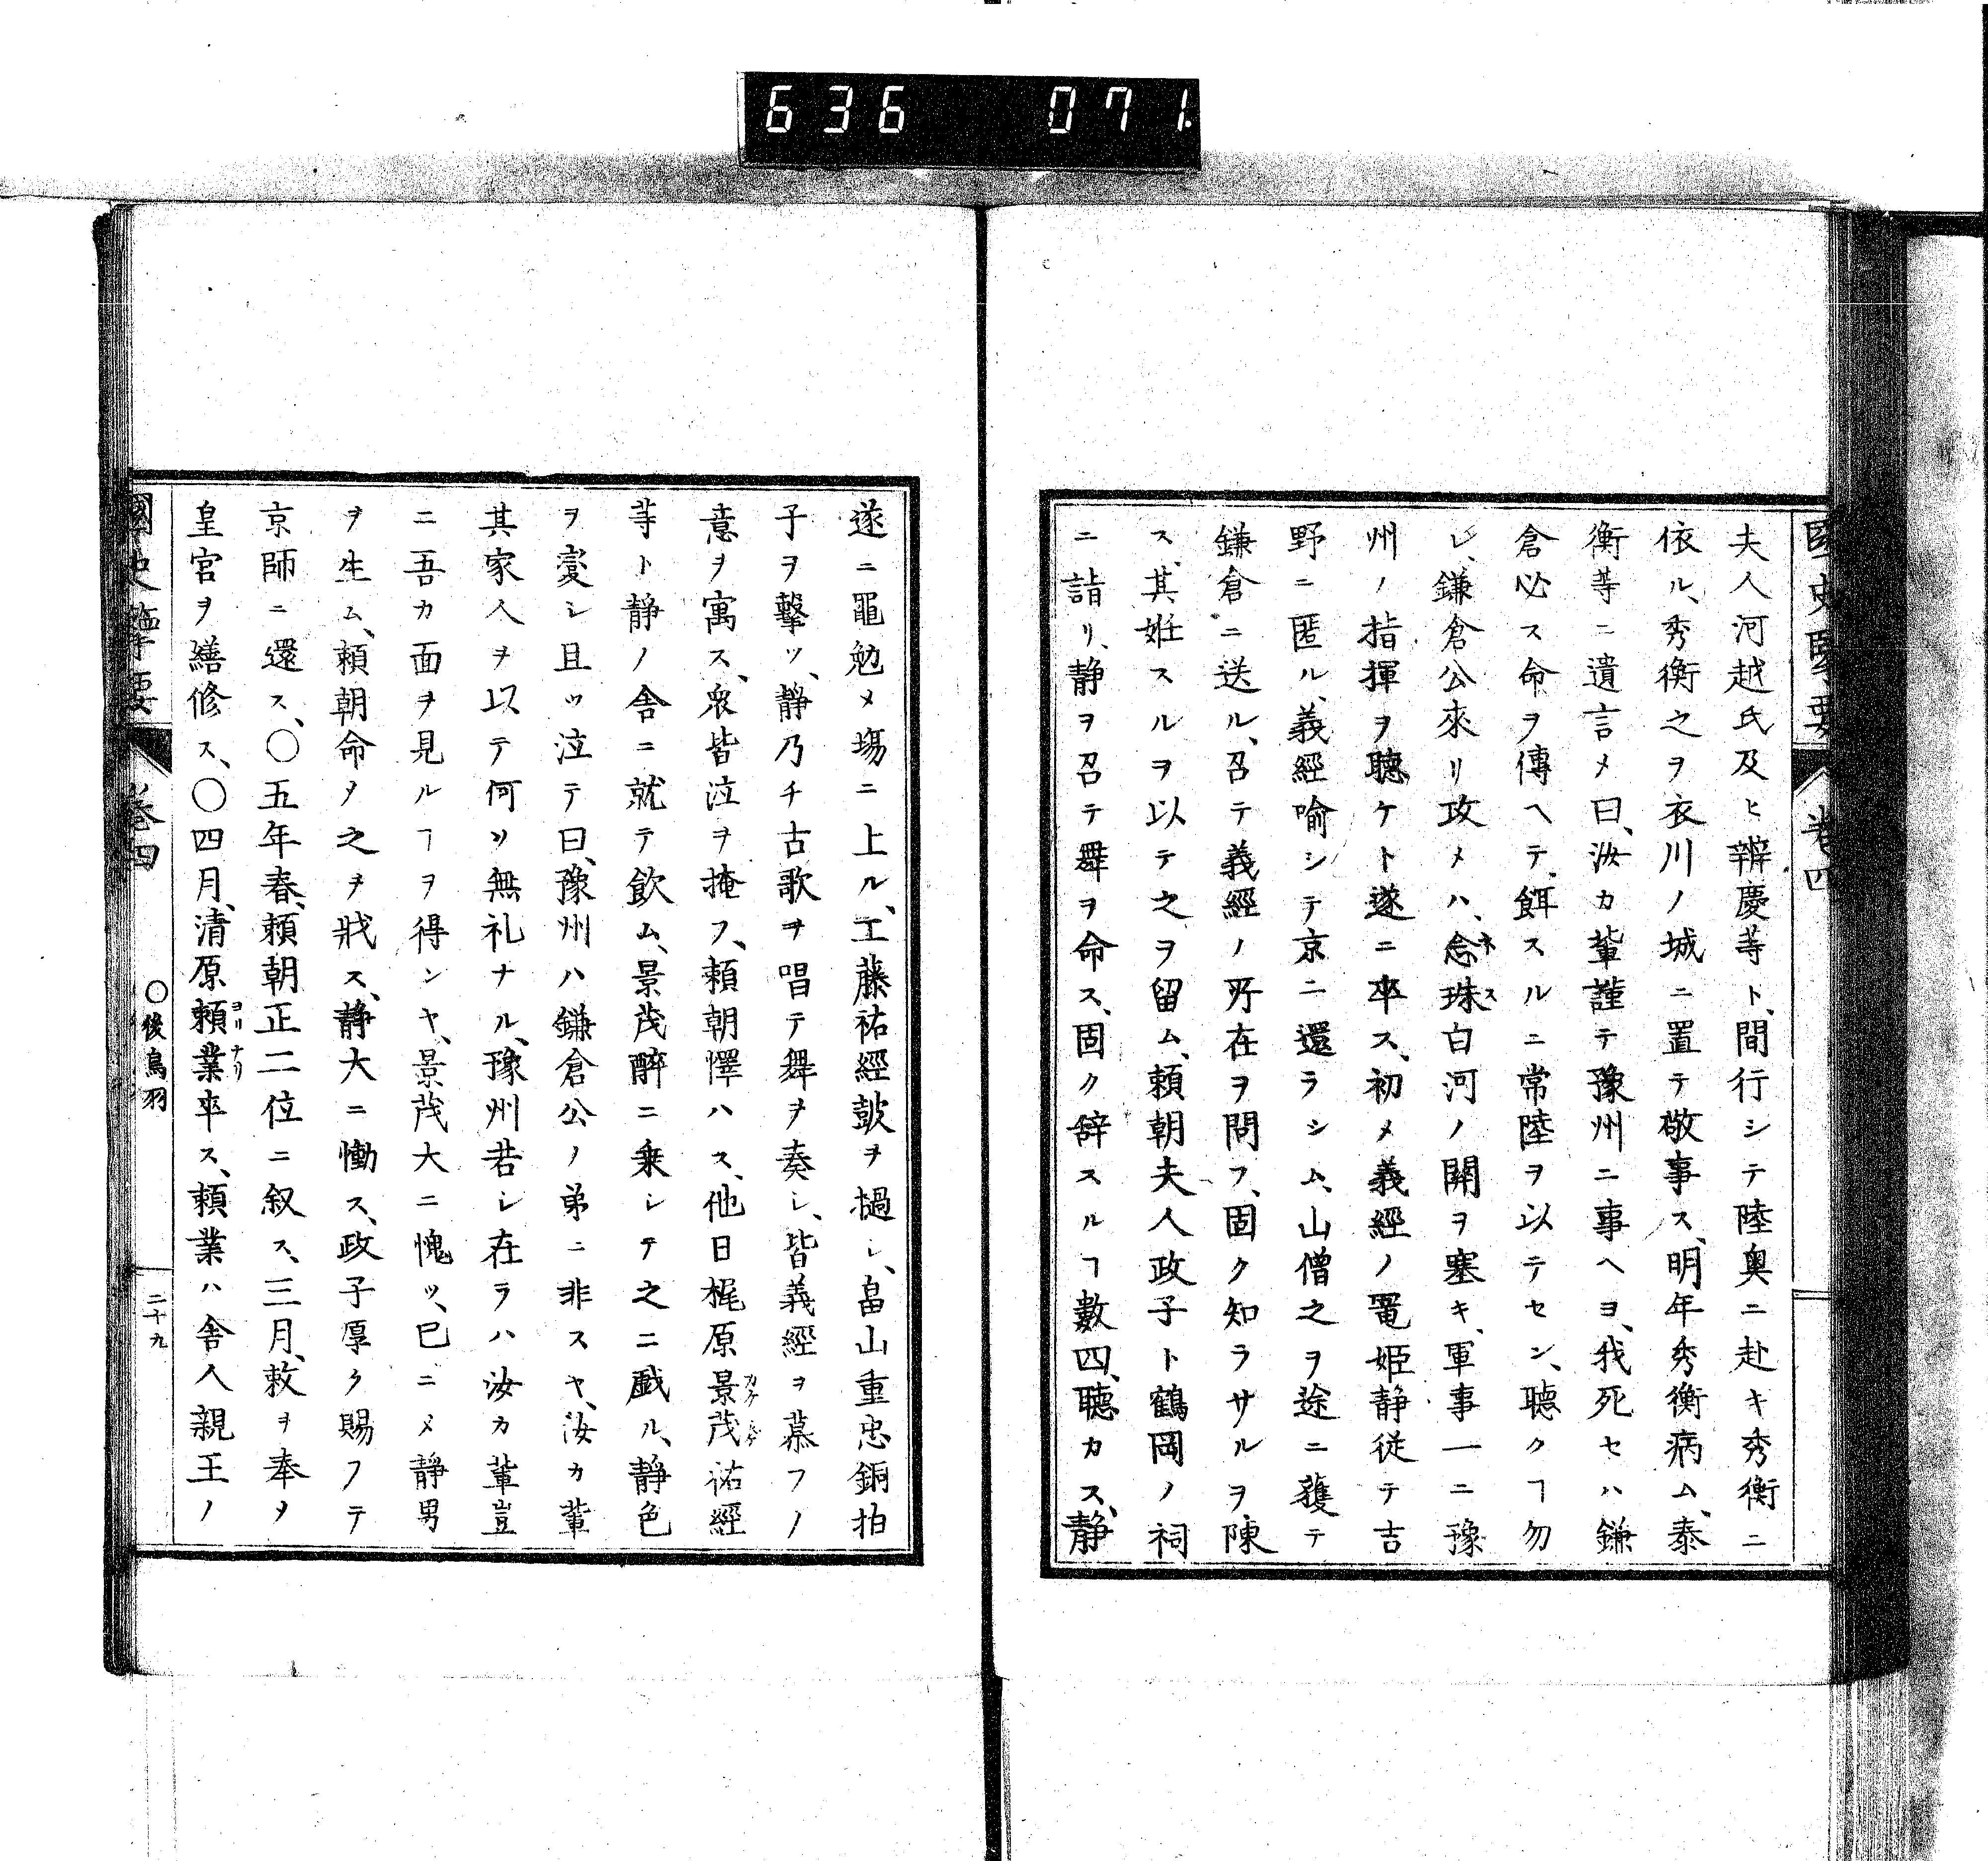 636 071.
國史擥要 卷四
夫人河越氏及ヒ辨慶等ト、間行シテ陸奥ニ赴キ秀衡ニ
依ル、秀衡之ヲ衣川ノ城ニ置テ敬事ス、明年秀衡病ム、泰
衡等ニ遺言メ曰、汝カ輩謹テ豫州ニ事ヘヨ、我死セハ鎌
倉必ス命ヲ傳ヘテ、餌スルニ常陸ヲ以テセン、聽クヿ勿
レ、鎌倉公來リ攻メハ、念珠白河ノ關ヲ塞キ、軍事一ニ豫
ネス
州ノ指揮ヲ聽ケト遂ニ卒ス、初メ義經ノ寵姫静従テ吉
野ニ匿ル、義經喻シテ京ニ還ラシム、山僧之ヲ途ニ獲テ
鎌倉ニ送ル、召テ義經ノ所在ヲ問フ、固ク知ラサルヲ陳
ス、其姙スルヲ以テ之ヲ留ム、頼朝夫人政子ト鶴岡ノ祠
ニ詣リ、静ヲ召テ舞ヲ命ス、固ク辞スルヿ數四、聽カス、静
遂ニ黽勉メ塲ニ上ル、工藤祐經皷ヲ撾シ、畠山重忠銅拍
子ヲ擊ツ、静乃チ古歌ヲ唱テ舞ヲ奏シ、皆義經ヲ慕フノ
意ヲ寓ス、衆皆泣ヲ掩フ、頼朝懌ハス、他日梶原景茂祐經
等ト静ノ舎ニ就テ飲ム、景茂醉ニ乗シテ之ニ戯ル、静色
ヲ變シ且ツ泣テ曰、豫州ハ鎌倉公ノ弟ニ非スヤ、汝カ輩
其家人ヲ以テ何ソ無礼ナル、豫州若シ在ラハ汝カ輩豈
ニ吾カ面ヲ見ルヿヲ得ンヤ、景茂大ニ愧ツ、已ニメ静男
ヲ生ム、頼朝命メ之ヲ戕ス、静大ニ慟ス、政子厚ク賜フテ
京師ニ還ス、〇五年春、頼朝正二位ニ叙ス、三月、敕ヲ奉メ
皇宮ヲ繕修ス、〇四月、清原頼業卒ス、頼業ハ舎人親王ノ
ヨリナリ
國史擥要 卷四 〇後鳥羽 二十九